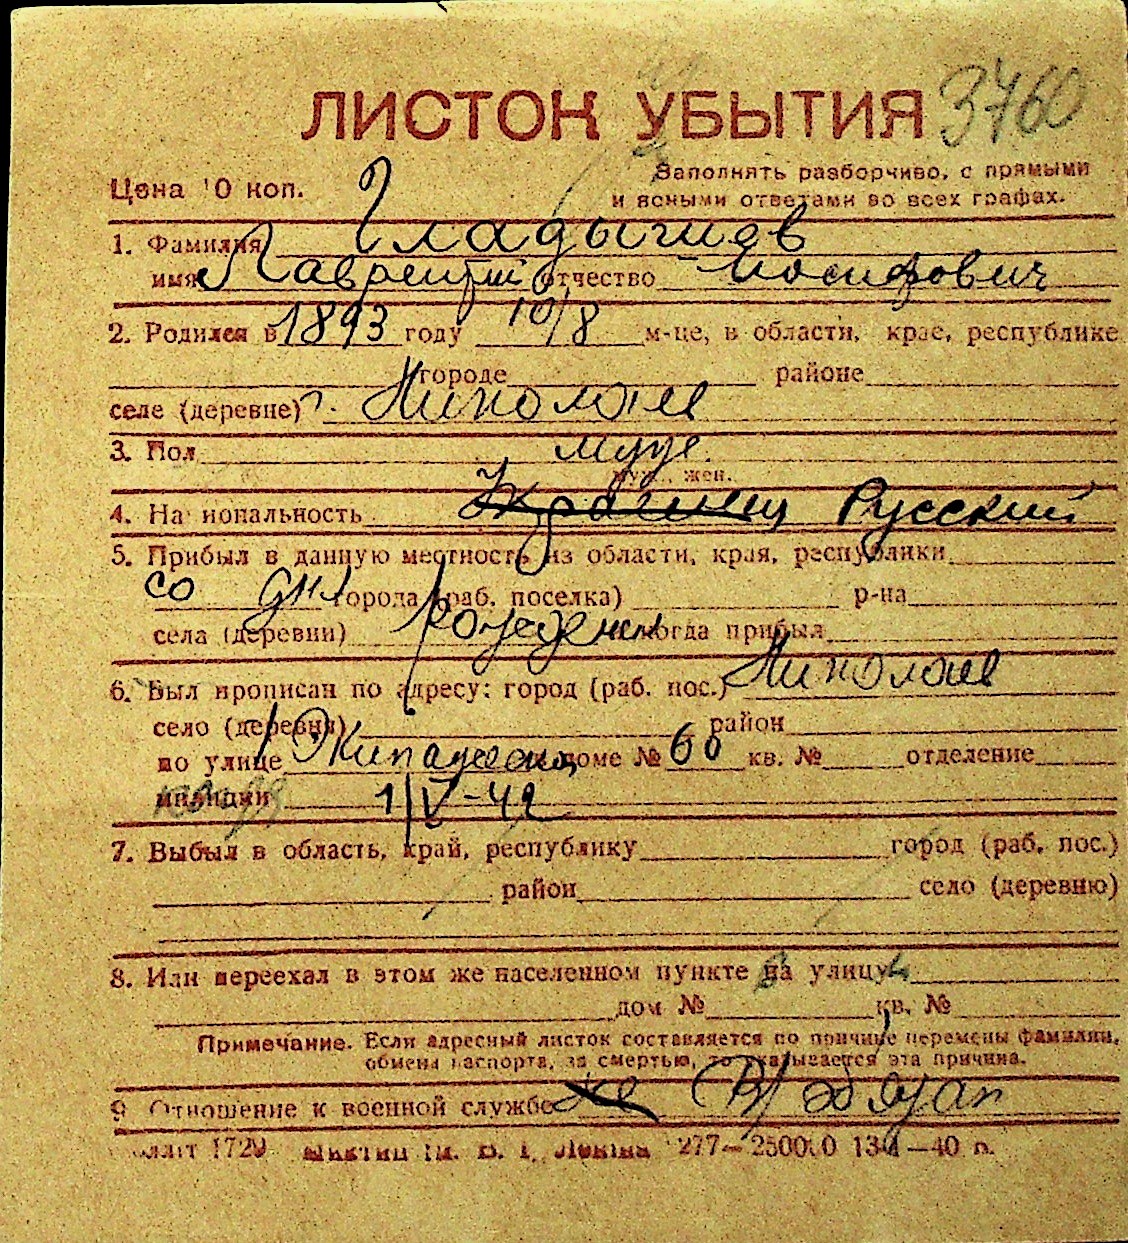 ЛИСТОК УБЫТИЯ 3760
Цена 10 коп. Заполнять разборчиво, с прямыми
и ясными ответами во всех графах.
1. Фамилия Гладышев
имя Лаврентий отчество Иосифович
2. Родился в 1893 году 10/8 м-це, в области, крае, республике
городе районе
селе (деревне) г. Николаев
3. Пол муж.
муж., жен.
4. Национальность Украинец Русский
5. Прибыл в данную местность из области, края, республики
со дня города (раб. поселка) р-на
села (деревни) рождения когда прибыл
6. Был прописан по адресу: город (раб. пос.) Николаев
село (деревня) район
по улице доме № 60 кв. № отделение
милиции 1/V-42
7. Выбыл в область, край, республику город (раб. пос.)
район село (деревню)
8. Или переехал в этом же населенном пункте на улицу
дом № кв. №
Примечание. Если адресный листок составляется по причине перемены фамилии,
обмена паспорта, за смертью, то указывается эта причина.
9. Отношение к военной службе В/обязан
277—250000